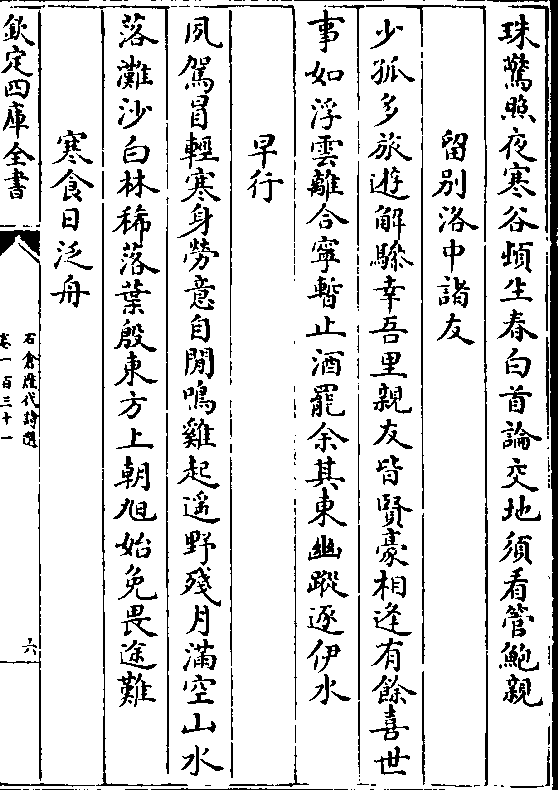 珠驚照夜寒谷頓生春白首論交地須看管鮑親
留别洛中諸友
少孤多旅遊解驂幸吾里親友皆賢豪相逢有餘喜世
事如浮雲離合寧暫止酒罷余其東幽蹤逐伊水
早行
夙駕冒輕寒身勞意自閒鳴雞起遥野殘月滿空山水
落灘沙白林稀落葉殷東方上朝旭始免畏途難
寒食日泛舟
欽定四庫全書
石倉歷代詩選
卷一百三十一
六